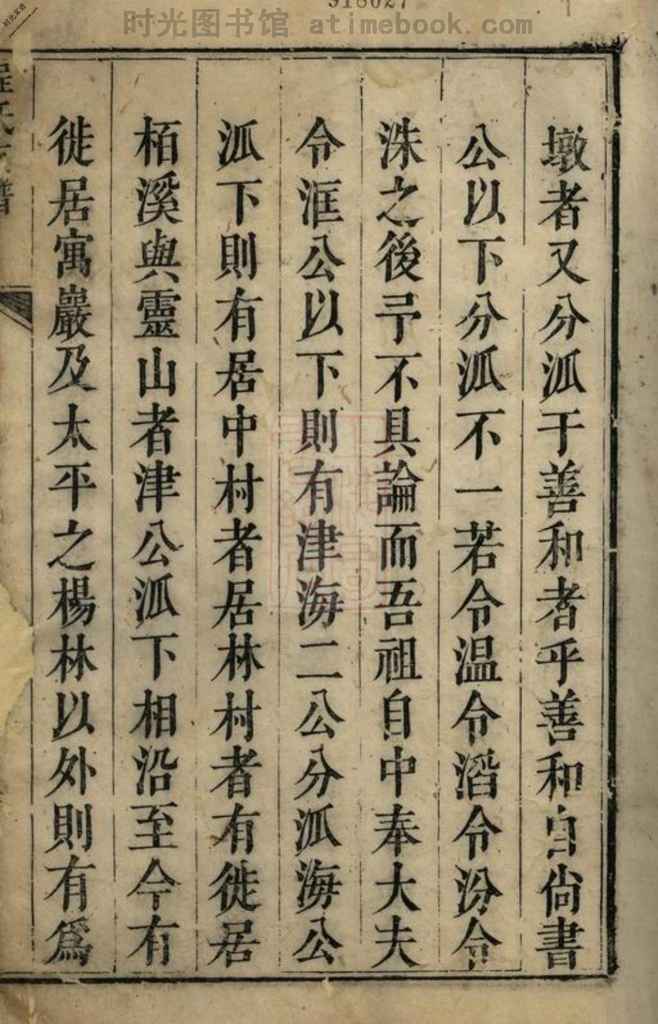 918027
时光图书馆 - atimebook.com
墩者又分泒于善和者乎善和自尙書
公以下分泒不一若令温令滔令汾令
洙之後予不具論而吾祖自中奉大夫
令洭公以下則有津海二公分泒海公
泒下則有居中村者居林村者有徙居
栢溪與靈山者津公泒下相沿至今有
徙居寓巖及太平之楊林以外則有爲